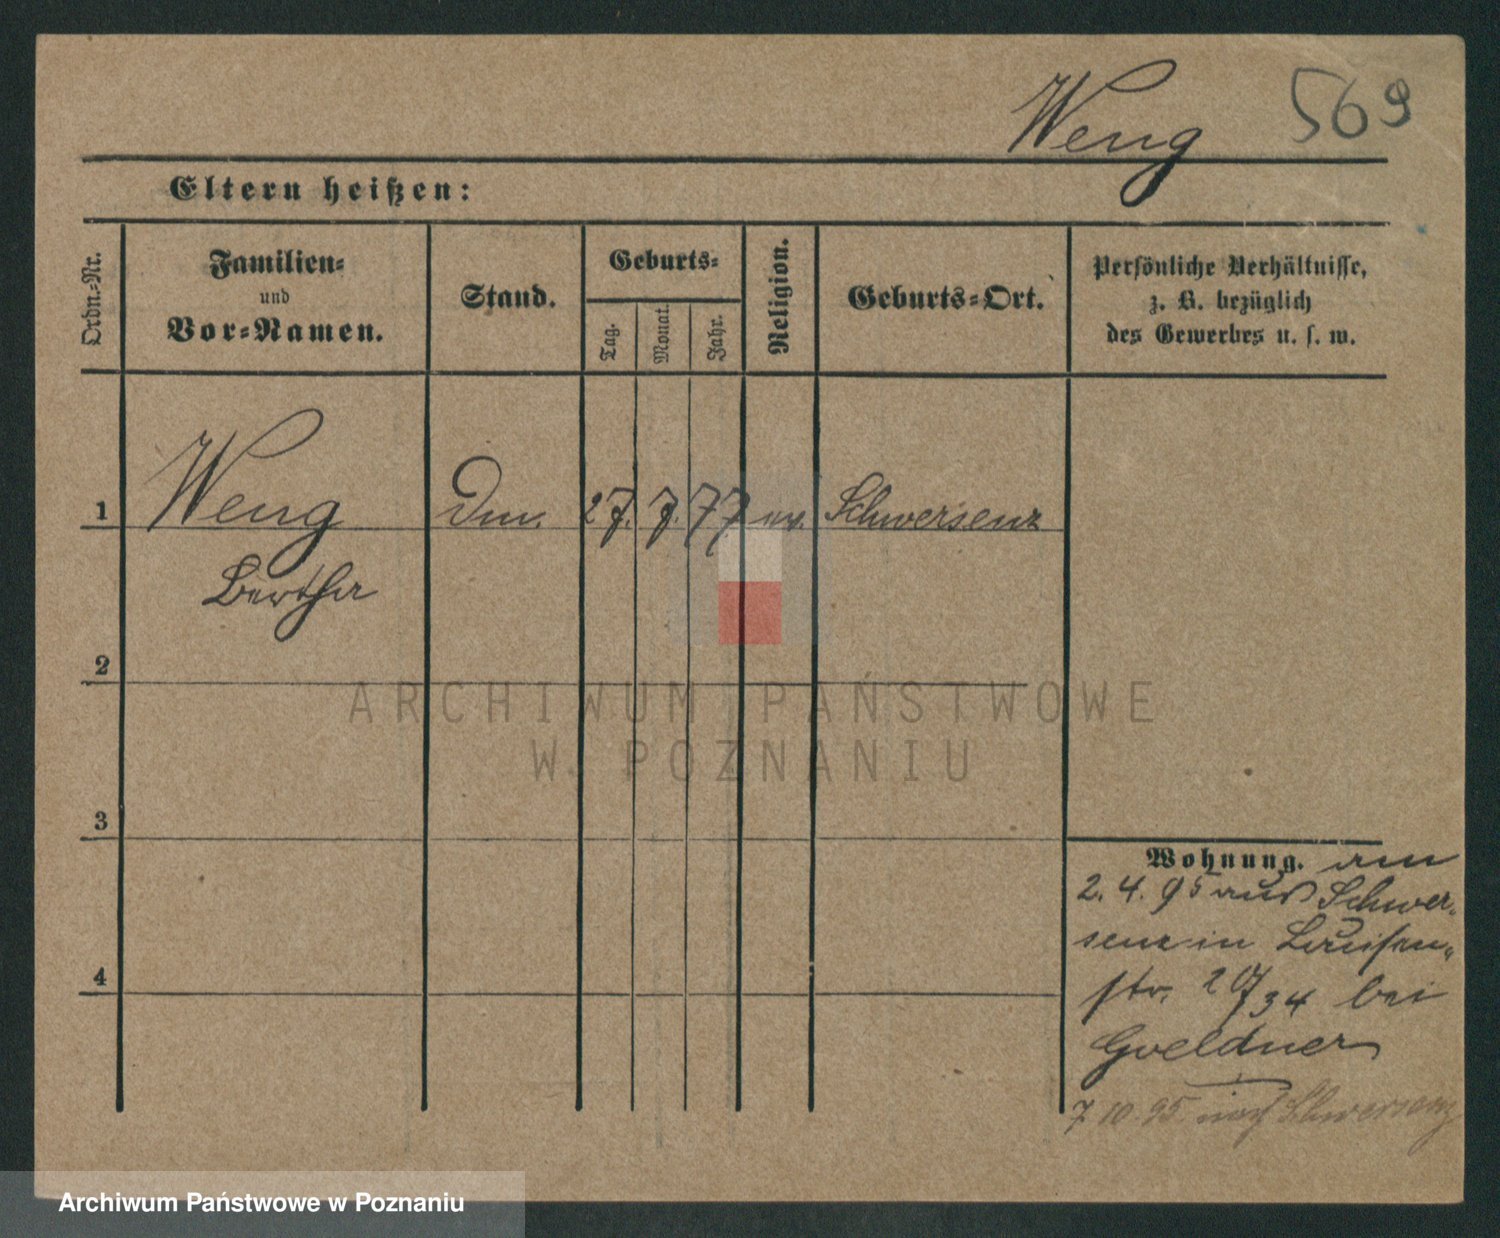 Weng 569
Eltern heißen:
Ordn.-Nr.
Familien-
und
Vor-Namen.
Stand.
Geburts-
Tag.
Monat.
Jahr.
Religion.
Geburts-Ort.
Persönliche Verhältnisse,
z. B. bezüglich
des Gewerbes u. s. w.
1 Weng 27. 7. 77 ev. Schwersenz
Bertha
2
3
4
Wohnung. am
2. 4. 95 aus Schwer-
senz in Louisen-
str. 20/34 bei
Goeldner
7. 10. 95. nach Schwersenz
ARCHIWUM PAŃSTWOWE
W POZNANIU
Archiwum Państwowe w Poznaniu